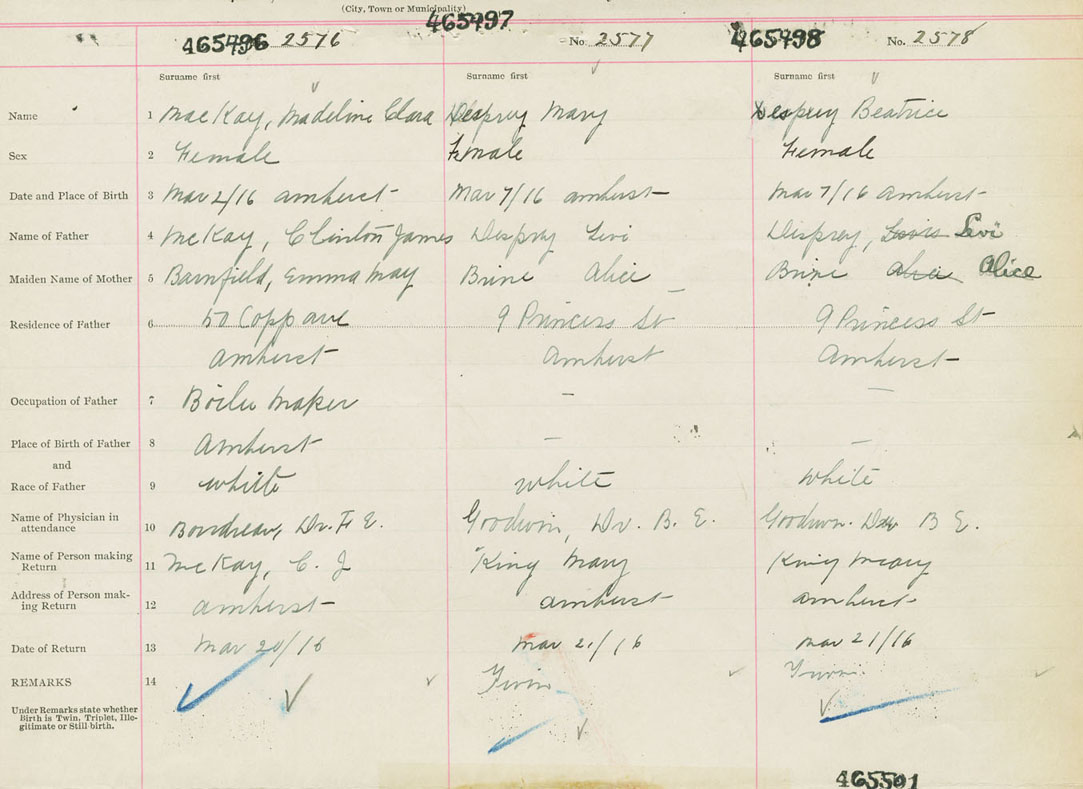 (City, Town or Municipality)
465496 2576
465497 No. 2577
465498 No. 2578
Surname first Surname first Surname first
Name 1 MacKay, Madeline Clara Desprey Mary Desprey Beatrice
Sex 2 Female Female Female
Date and Place of Birth 3 Mar 2/16 Amherst Mar 7/16 Amherst Mar 7/16 Amherst
Name of Father 4 McKay, Clinton James Desprey Levi Desprey, Levi
Maiden Name of Mother 5 Barnfield, Emma May Brine Alice Brine Alice Alice
Residence of Father 6 50 Copp ave 9 Princess St 9 Princess St
Amherst Amherst Amherst
Occupation of Father 7 Boiler Maker - -
Place of Birth of Father 8 Amherst - -
and
Race of Father 9 White White White
Name of Physician in
attendance 10 Boudreau, Dr. F E. Goodwin, Dr. B. E. Goodwin. Dr B E.
Name of Person making
Return 11 McKay, C. J King Mary King Mary
Address of Person mak-
ing Return 12 Amherst Amherst Amherst
Date of Return 13 Mar 20/16 Mar 21/16 Mar 21/16
REMARKS 14 Twin Twin
Under Remarks state whether
Birth is Twin, Triplet, Ille-
gitimate or Still-birth.
465501